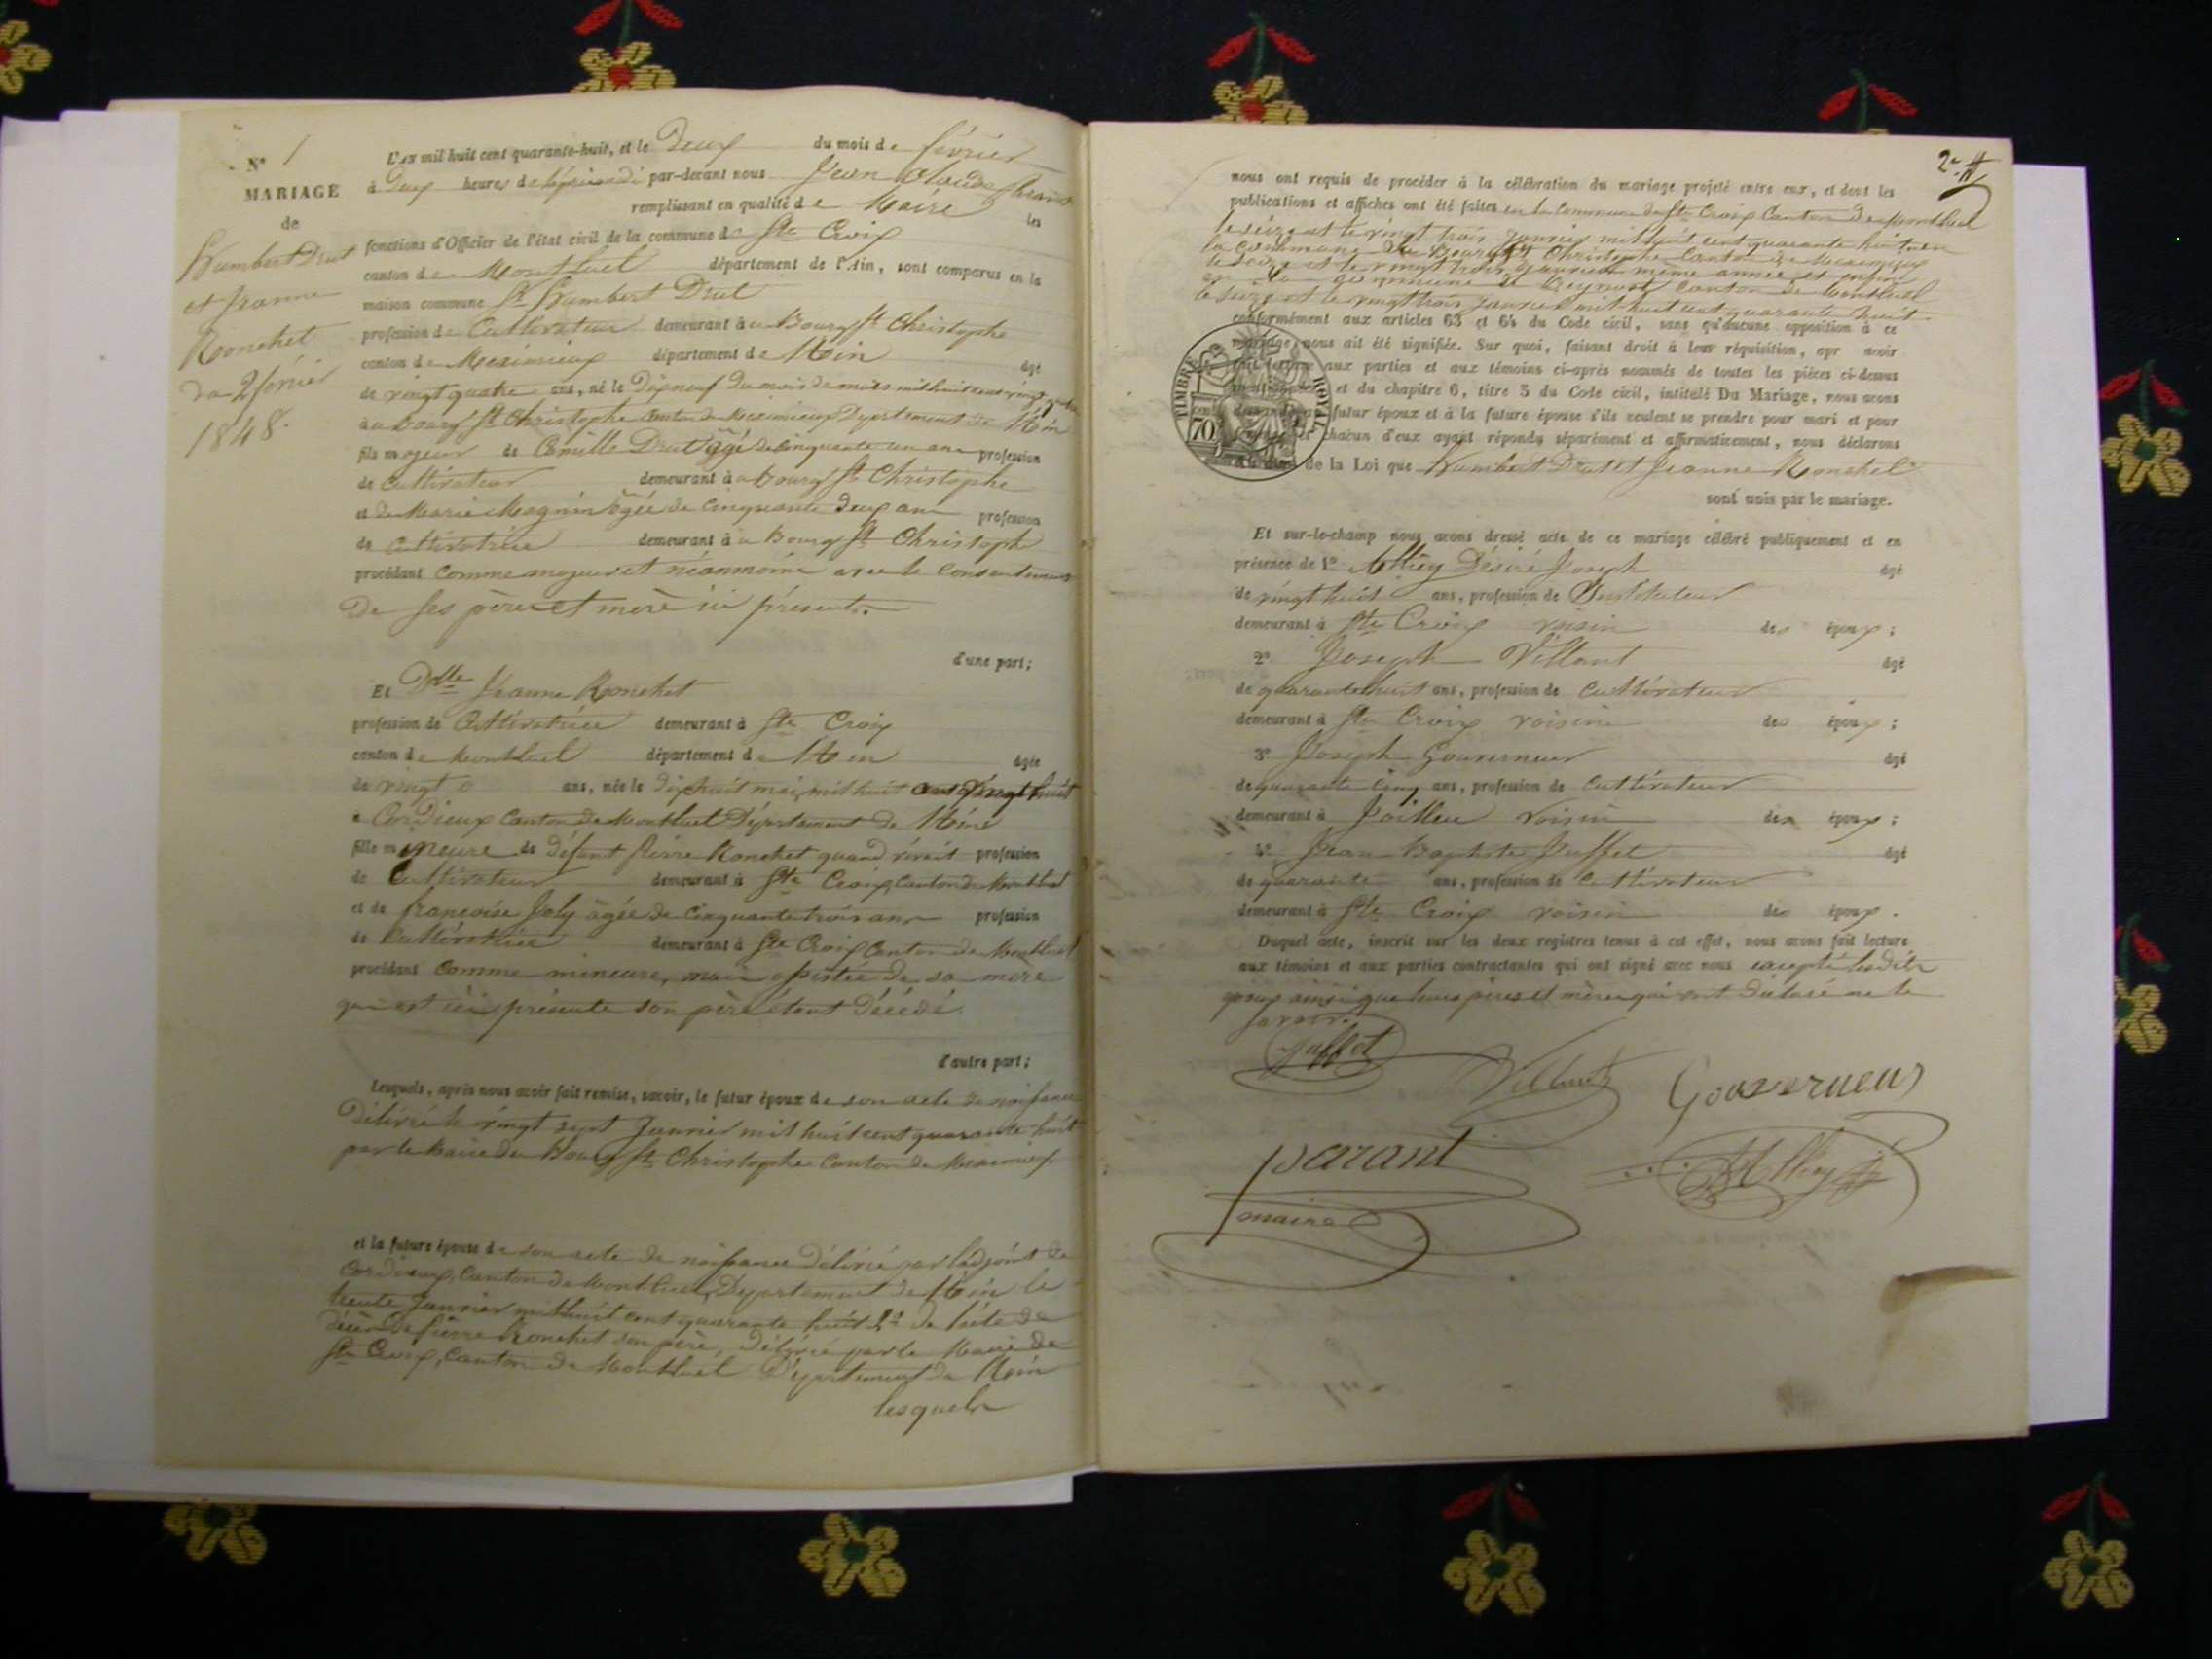 N° 1
MARIAGE
de
Humbert Drut
et Jeanne
Ronchet
du 2 février
1848.
L'AN mil huit cent quarante-huit, et le Deux du mois de février
à Deux heures de l'après midi par-devant nous Jean Claude Parant
remplissant en qualité de Maire les
fonctions d'Officier de l'état civil de la commune de Ste Croix
canton de Montluel département de l'Ain, sont comparus en la
maison commune Sr Humbert Drut
profession de Cultivateur demeurant à Bourg St Christophe
canton de Meximieux département de l'Ain âgé
de vingt quatre ans, né le Dix neuf du mois de mars mil huit cent vingt quatre
à Bourg St Christophe Canton de Meximieux Département de l'Ain
fils majeur de Camille Drut âgé de Cinquante un ans profession
de Cultivateur demeurant à Bourg St Christophe
et de Marie Magnin âgée de Cinquante Deux ans profession
de Cultivatrice demeurant à Bourg St Christophe
procédant Comme majeur et néanmoins avec le Consentement
De ses père et mère ici présents.
d'une part;
Et Dlle Jeanne Ronchet
profession de Cultivatrice demeurant à Ste Croix
canton de Montluel département de l'Ain âgée
de vingt ans, née le Dix huit mai mil huit cent vingt huit
à Cordieux Canton de Montluel Département de l'Ain
fille mineure de Défunt Pierre Ronchet quand vivait profession
de Cultivateur demeurant à Ste Croix, Canton de Montluel
et de françoise Joly âgée de Cinquante trois ans profession
de Cultivatrice demeurant à Ste Croix Canton de Montluel
procédant Comme mineure, mais assistée de sa mère
qui est ici présente son père étant Décédé.
d'autre part;
Lesquels, après nous avoir fait remise, savoir, le futur époux de son acte de naissance
Délivré le vingt sept Janvier mil huit cent quarante huit
par le Maire de Bourg St Christophe Canton de Meximieux.
et la future épouse de son acte de naissance Délivré par l'adjoint de
Cordieux, Canton de Montluel, Département de l'Ain le
trente Janvier mil huit cent quarante huit 2° de l'acte de
Décès de Pierre Ronchet son père, Délivré par le Maire de
Ste Croix, Canton de Montluel Département de l'Ain
lesquels
2e
nous ont requis de procéder à la célébration du mariage projeté entre eux, et dont les
publications et affiches ont été faites en la Commune de Ste Croix Canton de Montluel
le seize et le vingt trois Janvier mil huit cent quarante huit en
la Commune de Bourg St Christophe Canton de Meximieux
le seize et le vingt trois Janvier même année et enfin
en la commune de Beynost Canton de Montluel
le seize et le vingt trois Janvier mil huit cent quarante huit.
conformément aux articles 63 et 64 du Code civil, sans qu'aucune opposition à ce
mariage, nous ait été signifiée. Sur quoi, faisant droit à leur réquisition, apr avoir
fait lecture aux parties et aux témoins ci-après nommés de toutes les pièces ci-dessus
et du chapitre 6, titre 5 du Code civil, intitulé Du Mariage, nous avons
futur époux et à la future épouse s'ils veulent se prendre pour mari et pour
et chacun d'eux ayant répondu séparément et affirmativement, nous déclarons
de la Loi que Humbert Drut et Jeanne Ronchet
TIMBRE ROYAL
70
sont unis par le mariage.
Et sur-le-champ nous avons dressé acte de ce mariage célébré publiquement et en
présence de 1° Désiré Joseph âgé
de vingt huit ans, profession de Instituteur
demeurant à Ste Croix voisin des époux;
2° Joseph Villant âgé
de quarante huit ans, profession de Cultivateur
demeurant à Ste Croix voisin des époux;
3° Joseph Gouverneur âgé
de quarante Cinq ans, profession de Cultivateur
demeurant à voisin des époux;
4° Jean Baptiste Juffet âgé
de quarante ans, profession de Cultivateur
demeurant à Ste Croix voisin des époux.
Duquel acte, inscrit sur les deux registres tenus à cet effet, nous avons fait lecture
aux témoins et aux parties contractantes qui ont signé avec nous excepté lesdits
époux ainsi que leurs pères et mères qui ont déclaré ne le
savoir.
Juffet
Villant
Gouverneur
parant
maire